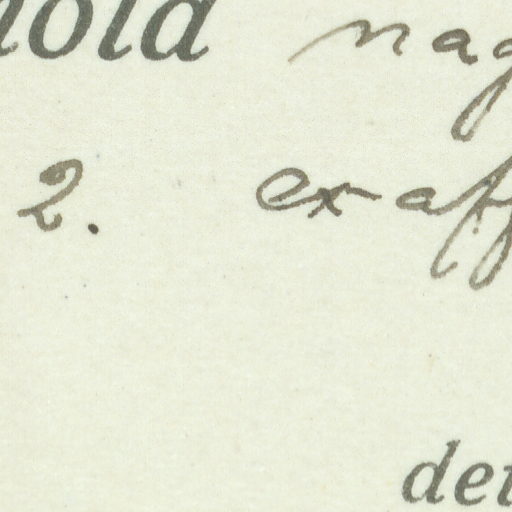 nold nag
2. ex aff
det